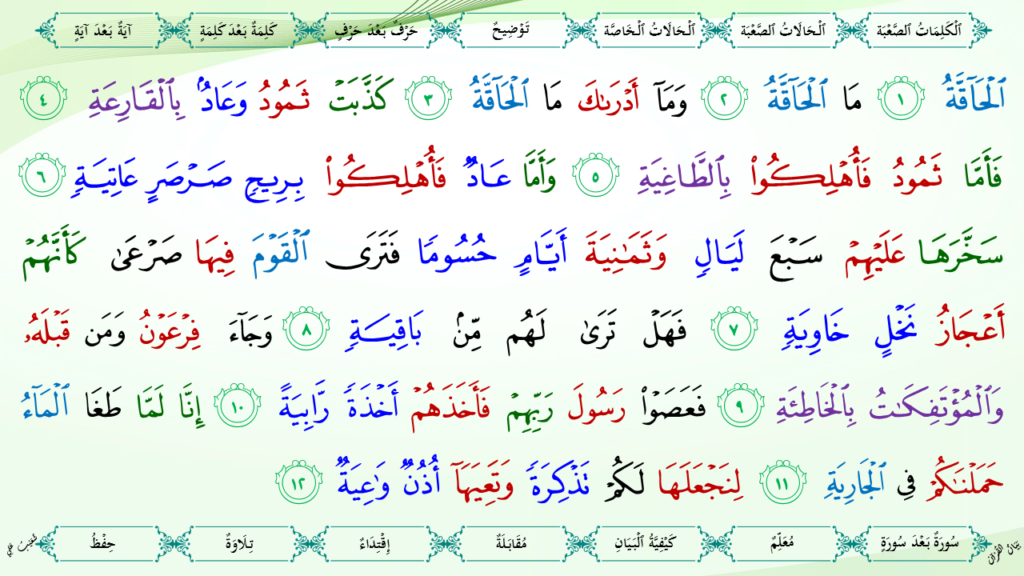 اَلْكَلِمَاتُ الصَّعْبَة اَلْحَالَاتُ الصَّعْبَة اَلْحَالَاتُ الْخَاصَّة تَوْضِيحٌ حَرْفٌ بَعْدَ حَرْفٍ كَلِمَةٌ بَعْدَ كَلِمَةٍ آيَةٌ بَعْدَ آيَةٍ
ٱلْحَآقَّةُ ١ مَا ٱلْحَآقَّةُ ٢ وَمَآ أَدْرَىٰكَ مَا ٱلْحَآقَّةُ ٣ كَذَّبَتْ ثَمُودُ وَعَادُۢ بِٱلْقَارِعَةِ ٤
فَأَمَّا ثَمُودُ فَأُهْلِكُوا۟ بِٱلطَّاغِيَةِ ٥ وَأَمَّا عَادٌ فَأُهْلِكُوا۟ بِرِيحٍ صَرْصَرٍ عَاتِيَةٍ ٦
سَخَّرَهَا عَلَيْهِمْ سَبْعَ لَيَالٍ وَثَمَٰنِيَةَ أَيَّامٍ حُسُومًا فَتَرَى ٱلْقَوْمَ فِيهَا صَرْعَىٰ كَأَنَّهُمْ
أَعْجَازُ نَخْلٍ خَاوِيَةٍ ٧ فَهَلْ تَرَىٰ لَهُم مِّنۢ بَاقِيَةٍ ٨ وَجَآءَ فِرْعَوْنُ وَمَن قَبْلَهُۥ
وَٱلْمُؤْتَفِكَٰتُ بِٱلْخَاطِئَةِ ٩ فَعَصَوْا۟ رَسُولَ رَبِّهِمْ فَأَخَذَهُمْ أَخْذَةً رَّابِيَةً ١٠ إِنَّا لَمَّا طَغَا ٱلْمَآءُ
حَمَلْنَٰكُمْ فِى ٱلْجَارِيَةِ ١١ لِنَجْعَلَهَا لَكُمْ تَذْكِرَةً وَتَعِيَهَآ أُذُنٌ وَٰعِيَةٌ ١٢
سُورَةٌ بَعْدَ سُورَةٍ مُعَلِّمٌ كَيْفِيَّةُ الْبَيَانِ مُقَابَلَةٌ إِقْتِدَاءٌ تِلَاوَةٌ حِفْظٌ